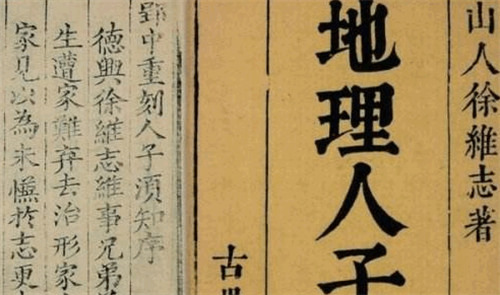 山人徐維志著
地理人子
古
中重刻人子須知序
德興徐維志維事兄弟
生遭家難弃去治形家
家見以為未愜於志更